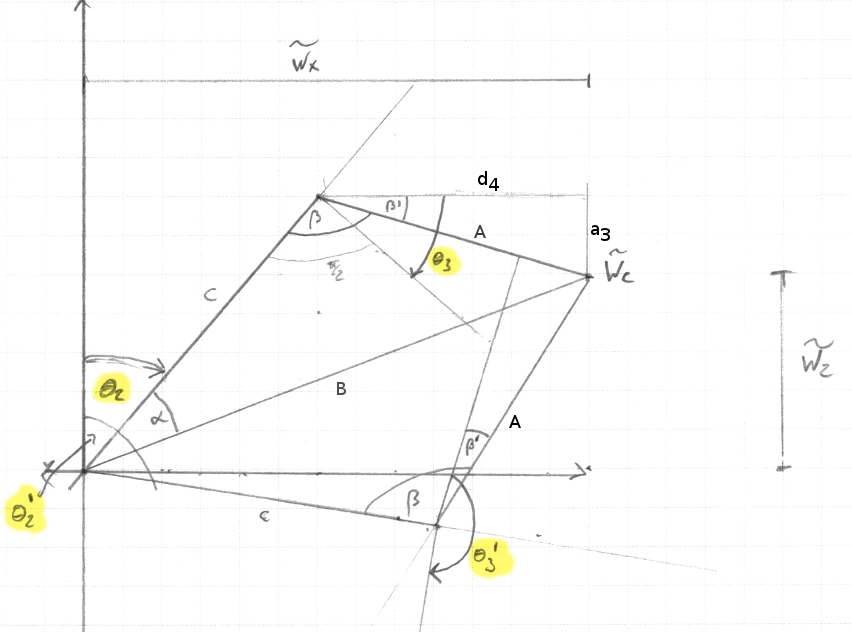 W̃x
d4
β
β'
A
a3
θ3
W̃c
π/2
C
W̃z
θ2
B
α
A
β'
θ2'
β
c
θ3'